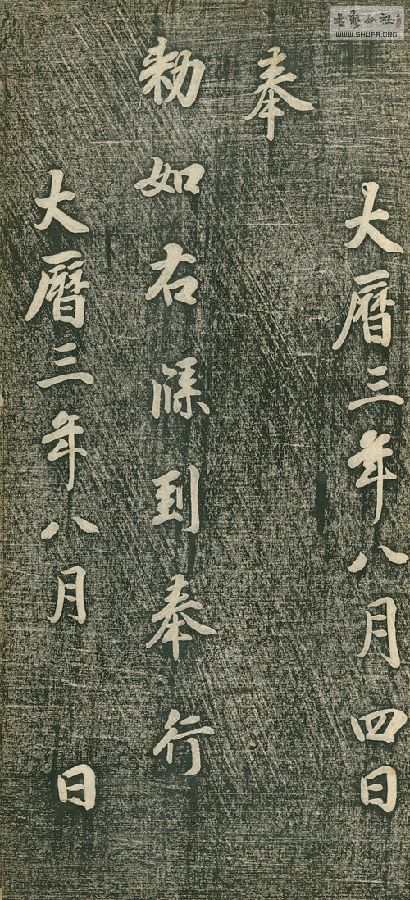 大曆三年八月四日
奉
勅如右牒到奉行
大曆三年八月 日
書藝公社
WWW.SHUFA.ORG